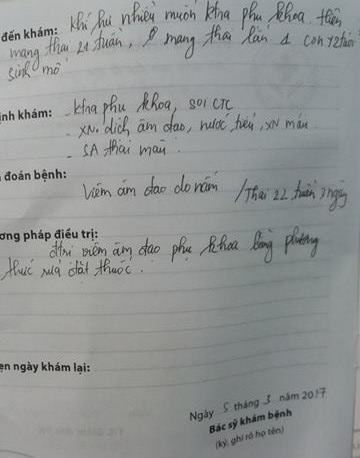 đến khám: Khí hư nhiều muốn ktra phụ khoa, hiện
mang thai 21 tuần, mang thai lần 1 con 12 tuổi
sinh mổ
nh khám: - ktra phụ khoa, soi CTC
- XN. dịch âm đạo, nước tiểu, XN máu
- SA thai màu
đoán bệnh:
Viêm âm đạo do nấm / Thai 22 tuần 2 ngày
ơng pháp điều trị:
đtrị viêm âm đạo phụ khoa bằng phương
thức rửa đặt thuốc.
ẹn ngày khám lại:
Ngày 5 tháng 3 năm 2017
Bác sỹ khám bệnh
(ký, ghi rõ họ tên)